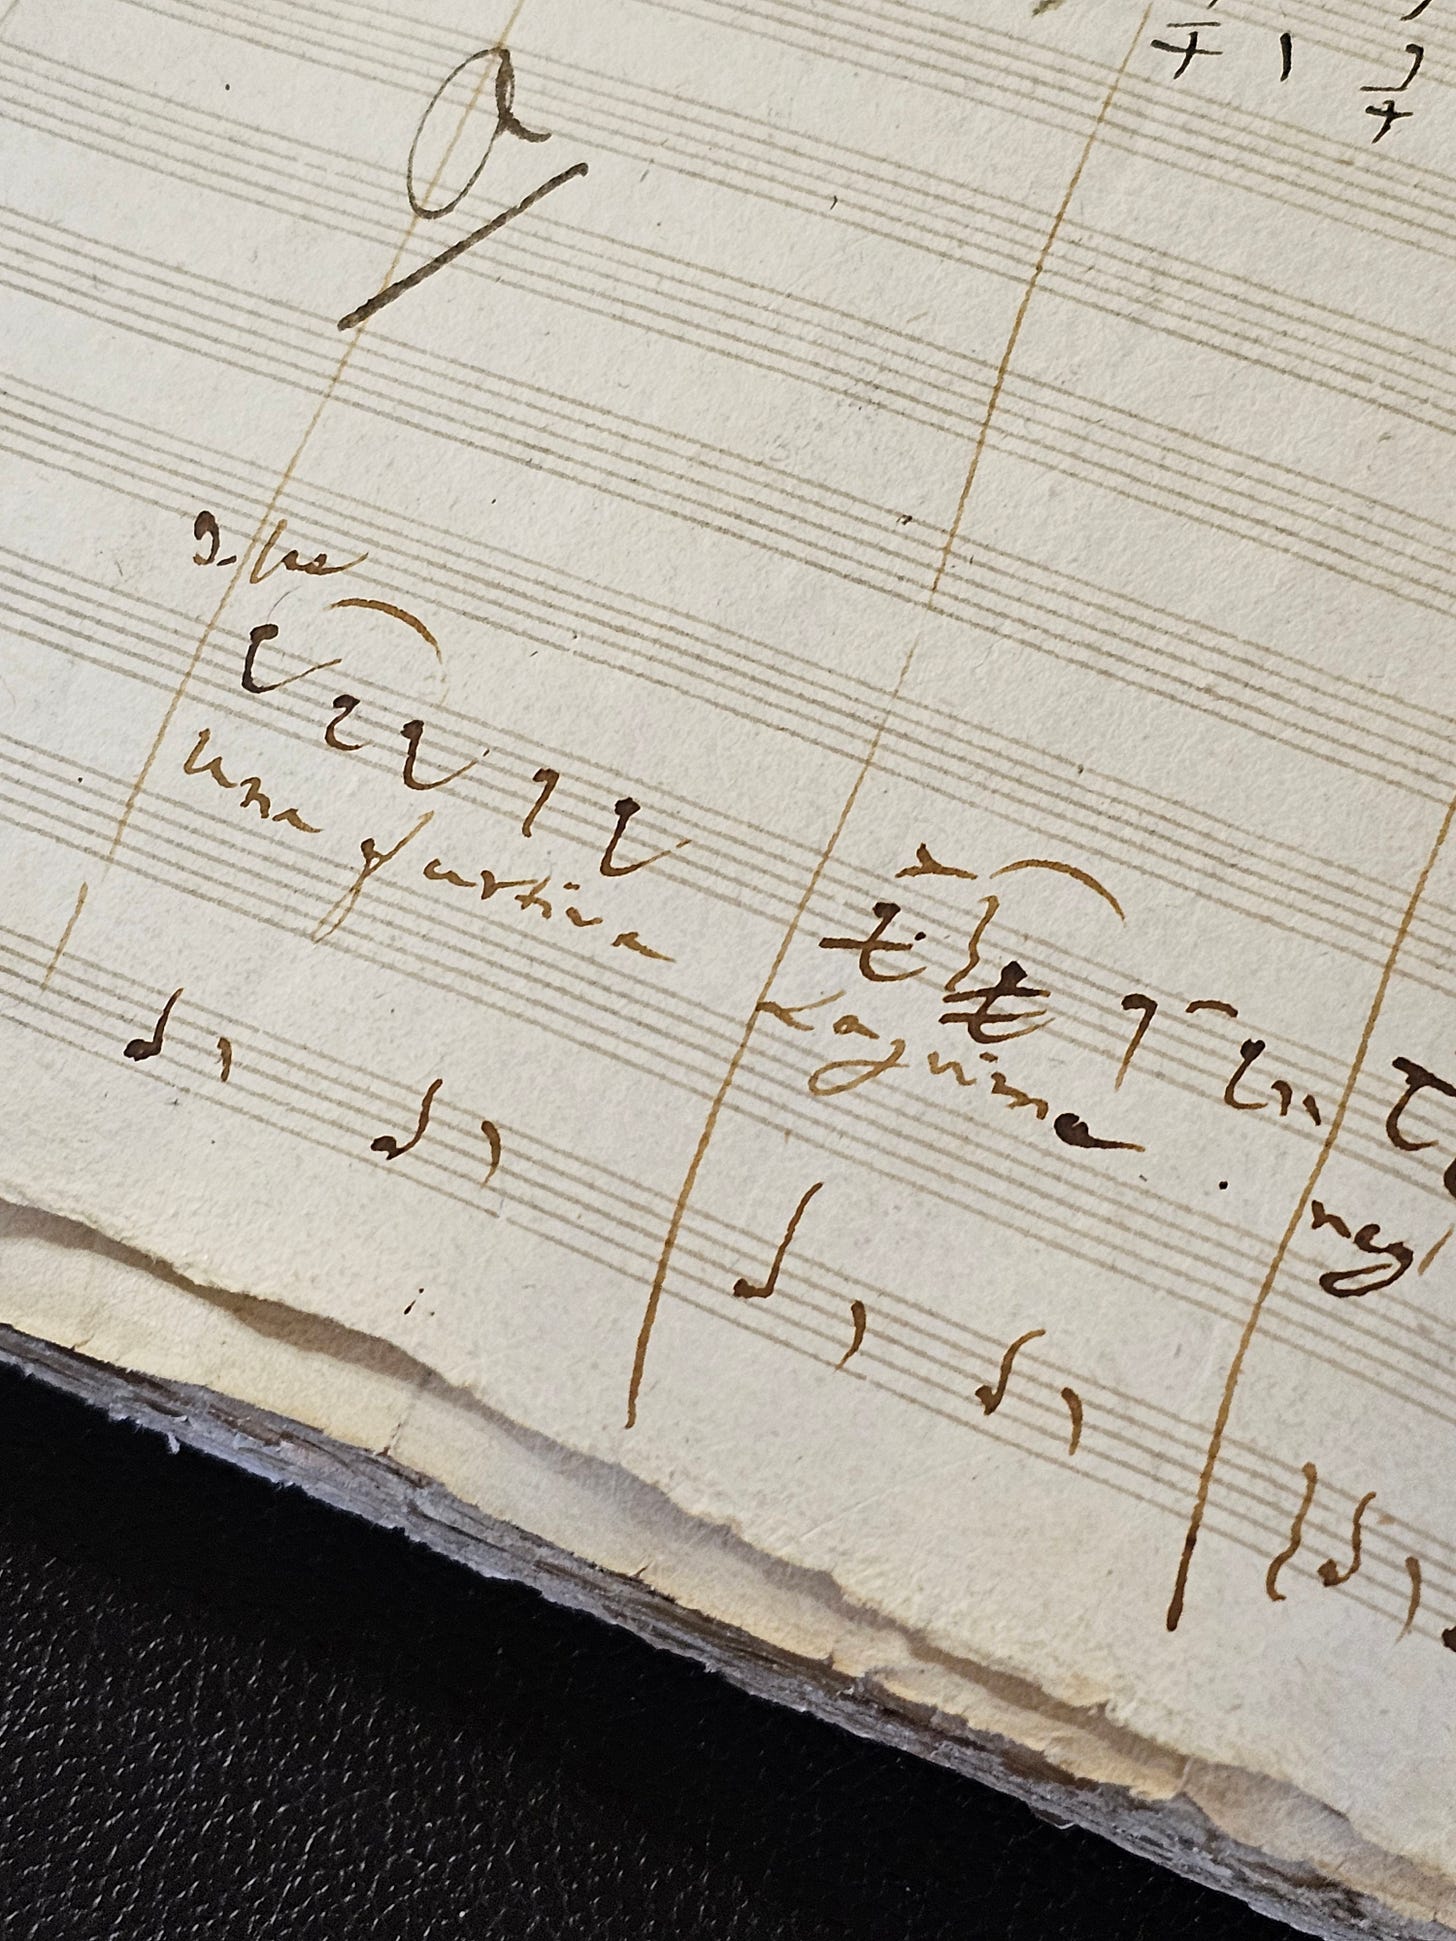 una furtiva Lagrima negl